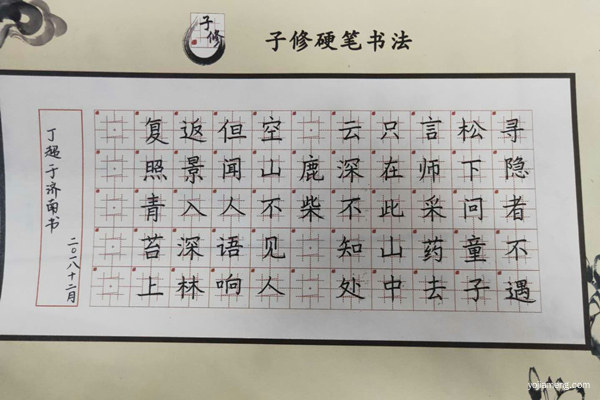 子修
子修硬笔书法
寻隐者不遇
松下问童子
言师采药去
只在此山中
云深不知处
鹿柴
空山不见人
但闻人语响
返景入深林
复照青苔上
丁超于济南书
二〇一八十二月
yojinmeng.com